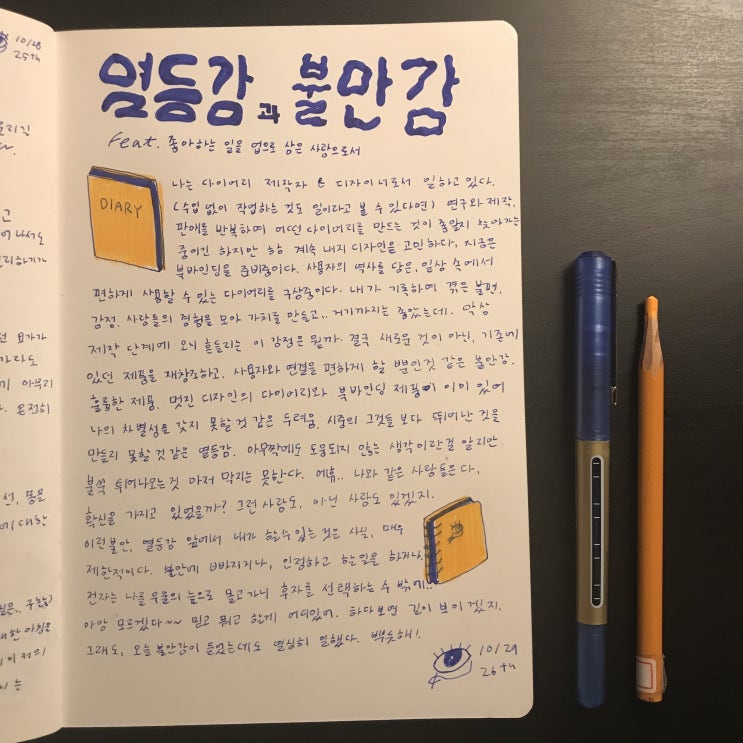 10/28
25th
열등감과 불만감
Feat. 좋아하는 일을 업으로 삼은 사람으로서
DIARY
나는 다이어리 제작자 & 디자이너로서 일하고 있다.
(수입 없이 작업하는 것도 일이라고 볼 수 있다면) 연구와 제작,
판매를 반복하며 어떤 다이어리를 만드는 것이 좋을지 찾아가는
중이긴 하지만 항상 계속 내지 디자인을 고민하다, 지금은
북바인딩을 준비중이다. 사용자의 역사를 담은, 일상 속에서
편하게 사용할 수 있는 다이어리를 구상중이다. 내가 기록하며 겪은 불편,
감정, 사람들의 경험을 모아 가치를 만들고.. 거기까지는 좋았는데. 막상
제작 단계에 오니 흔들리는 이 감정은 뭘까. 결국 새로운 것이 아닌, 기존에
있던 제품을 재창조하고, 사용자와 연결을 편하게 할 뿐인 것 같은 불안감.
훌륭한 제품, 멋진 디자인의 다이어리와 북바인딩 제품이 이미 있어
나의 차별성을 갖지 못할 것 같은 두려움. 시중의 그것들 보다 뛰어난 것을
만들지 못할 것 같은 열등감. 아무짝에도 도움되지 않는 생각이란걸 알지만
불쑥 튀어나오는 것 마저 막지는 못한다. 에휴.. 나와 같은 사람들은 다,
확신을 가지고 있었을까? 그런 사람도, 아닌 사람도 있겠지.
이런 불안, 열등감 앞에서 내가 할 수 있는 것은 사실, 매우
제한적이다. 불안에 빠바지거나, 인정하고 할 일을 하거나.
전자는 나를 우울의 늪으로 몰고가니 후자를 선택하는 수 밖에..
아앙 모르겠다~~ 믿고 뭐고 할게 어디있어. 하다보면 길이 보이겠지.
그래도, 오늘 불안감이 들었는데도 열심히 일했다. 뿌듯해!
10/29
26th